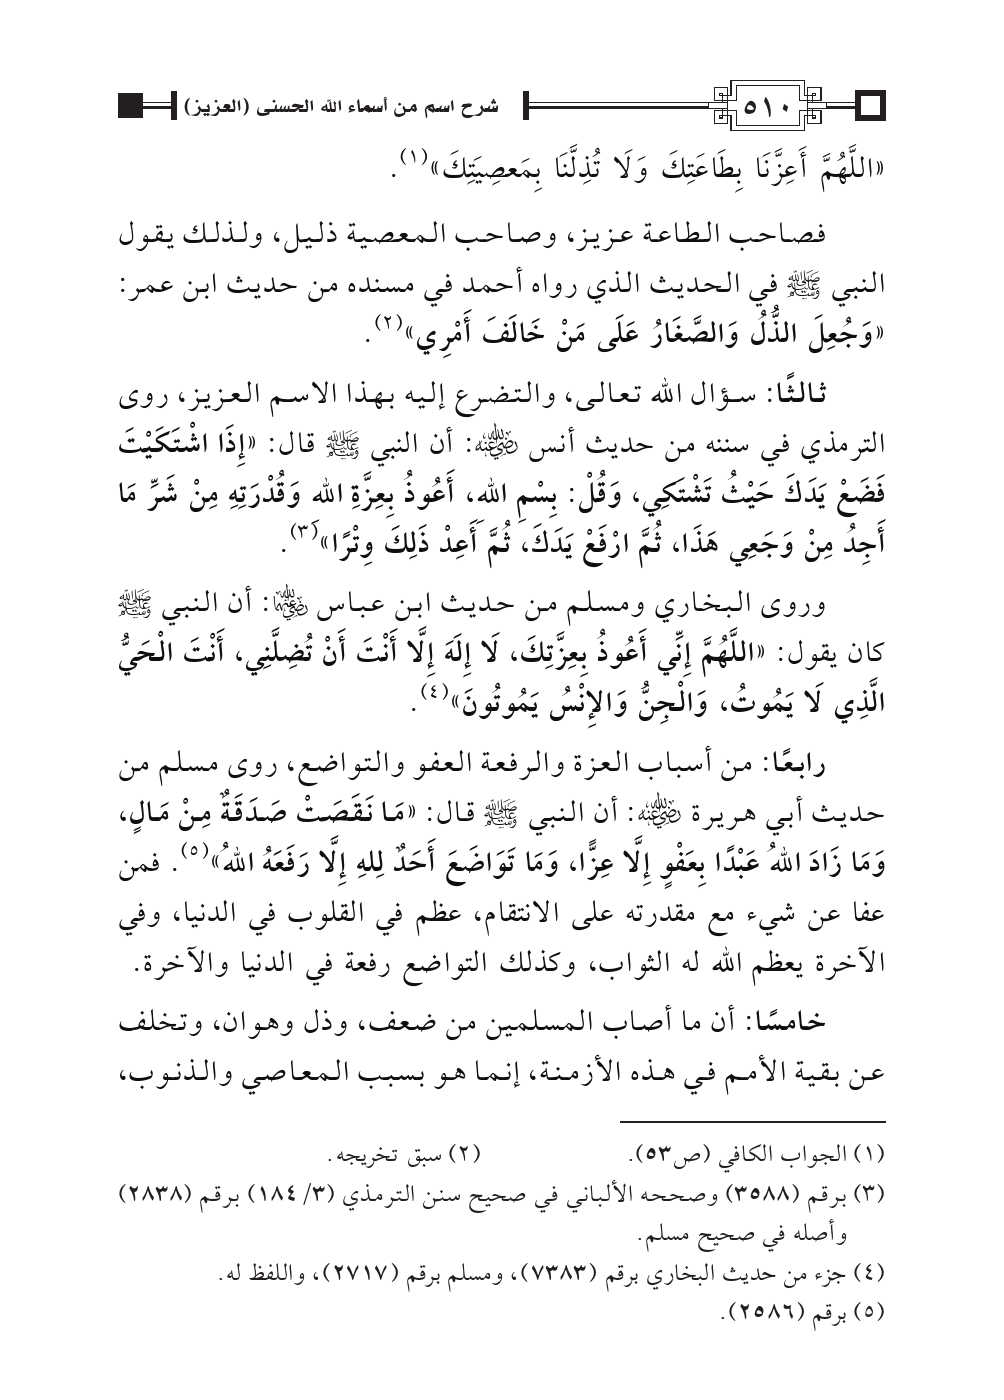 ٥١٠
شرح اسم من أسماء الله الحسنى (العزيز)
«اللَّهُمَّ أَعِزَّنَا بِطَاعَتِكَ وَلَا تُذِلَّنَا بِمَعصِيَتِكَ»(١).
فصاحب الطاعة عزيز، وصاحب المعصية ذليل، ولذلك يقول
النبي ﷺ في الحديث الذي رواه أحمد في مسنده من حديث ابن عمر:
«وَجُعِلَ الذُّلُ وَالصَّغَارُ عَلَى مَنْ خَالَفَ أَمْرِي»(٢).
ثالثًا: سؤال الله تعالى، والتضرع إليه بهذا الاسم العزيز، روى
الترمذي في سننه من حديث أنس رضي الله عنه: أن النبي ﷺ قال: «إِذَا اشْتَكَيْتَ
فَضَعْ يَدَكَ حَيْثُ تَشْتَكِي، وَقُلْ: بِسْمِ اللهِ، أَعُوذُ بِعِزَّةِ الله وَقُدْرَتِهِ مِنْ شَرِّ مَا
أَجِدُ مِنْ وَجَعِي هَذَا، ثُمَّ ارْفَعْ يَدَكَ، ثُمَّ أَعِدْ ذَلِكَ وِتْرًا»(٣).
وروى البخاري ومسلم من حديث ابن عباس رضي الله عنهما: أن النبي ﷺ
كان يقول: «اللَّهُمَّ إِنِّي أَعُوذُ بِعِزَّتِكَ، لَا إِلَهَ إِلَّا أَنْتَ أَنْ تُضِلَّنِي، أَنْتَ الْحَيُّ
الَّذِي لَا يَمُوتُ، وَالْجِنُّ وَالإِنْسُ يَمُوتُونَ»(٤).
رابعًا: من أسباب العزة والرفعة العفو والتواضع، روى مسلم من
حديث أبي هريرة رضي الله عنه: أن النبي ﷺ قال: «مَا نَقَصَتْ صَدَقَةٌ مِنْ مَالٍ،
وَمَا زَادَ اللهُ عَبْدًا بِعَفْوٍ إِلَّا عِزًّا، وَمَا تَوَاضَعَ أَحَدٌ لِلهِ إِلَّا رَفَعَهُ اللهُ»(٥). فمن
عفا عن شيء مع مقدرته على الانتقام، عظم في القلوب في الدنيا، وفي
الآخرة يعظم الله له الثواب، وكذلك التواضع رفعة في الدنيا والآخرة.
خامسًا: أن ما أصاب المسلمين من ضعف، وذل وهوان، وتخلف
عن بقية الأمم في هذه الأزمنة، إنما هو بسبب المعاصي والذنوب،
(١) الجواب الكافي (ص٥٣). (٢) سبق تخريجه.
(٣) برقم (٣٥٨٨) وصححه الألباني في صحيح سنن الترمذي (٣/ ١٨٤) برقم (٢٨٣٨)
وأصله في صحيح مسلم.
(٤) جزء من حديث البخاري برقم (٧٣٨٣)، ومسلم برقم (٢٧١٧)، واللفظ له.
(٥) برقم (٢٥٨٦).